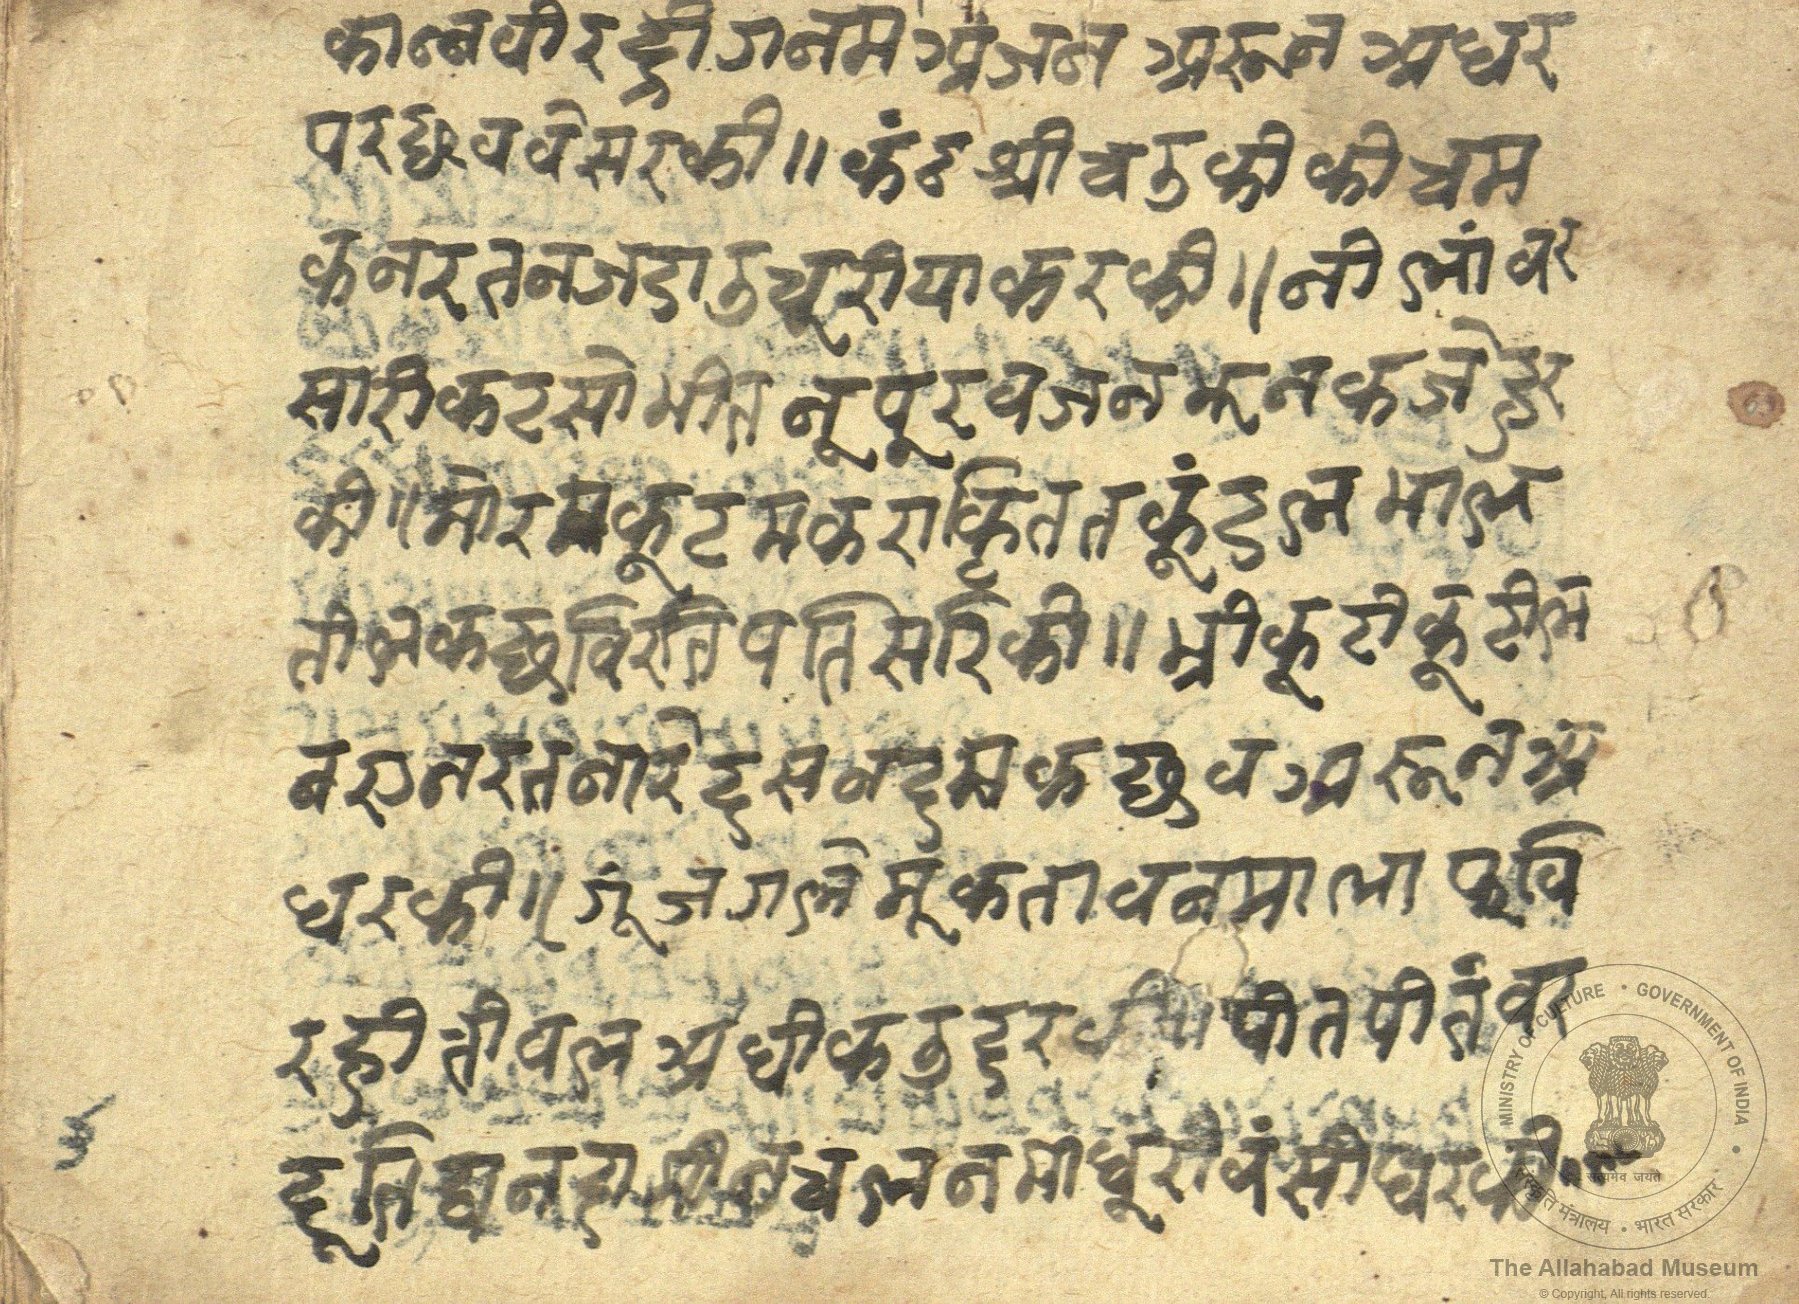 काननवीरद्रीगनमअंजनअरुनअधर
परछबवेसरकी॥कंठश्रीचठुकीकीचम
कनरतनजडाठुचूरीयाकरकी॥नीलांबर
सारीकटसोभीतनूपूरबजनझनकजेहर
की॥मोरमकूटमकराकृिततकूंडलभाल
तीलकछविरतिपतिसरिकी॥भ्रीकूटीकूटील
नरतनारेदसनदमकछबअरुनअ
धरकी॥गूंजगलेमूकतावनमाला
रहीतीवलअधीकठुदरकीपीतपीतंबर
दूतिचलनमाधूरीबंसीधरकी॥
MINISTRY OF CULTURE • GOVERNMENT OF INDIA
सत्यमेव जयते
संस्कृति मंत्रालय • भारत सरकार
The Allahabad Museum
© Copyright, All rights reserved.